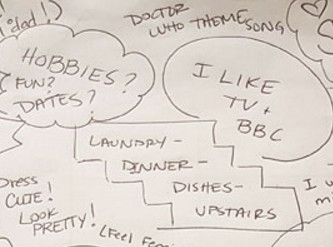 dad!
DOCTOR
WHO THEME SONG
HOBBIES?
FUN?
DATES?
I LIKE
TV +
BBC
LAUNDRY -
DINNER -
DISHES -
UPSTAIRS
DRESS
CUTE!
LOOK
PRETTY!
(Feel
I